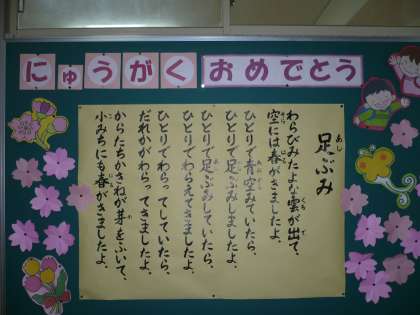 にゅうがく おめでとう
足ぶみ
わらびみたよな雲が出て、
空には春がきましたよ。
ひとりで青空みていたら、
ひとりで足ぶみしましたよ。
ひとりで足ぶみしていたら、
ひとりでわらえてきましたよ。
ひとりでわらってしていたら、
だれかがわらってきましたよ。
からたちかきねが芽をふいて、
小みちにも春がきましたよ。